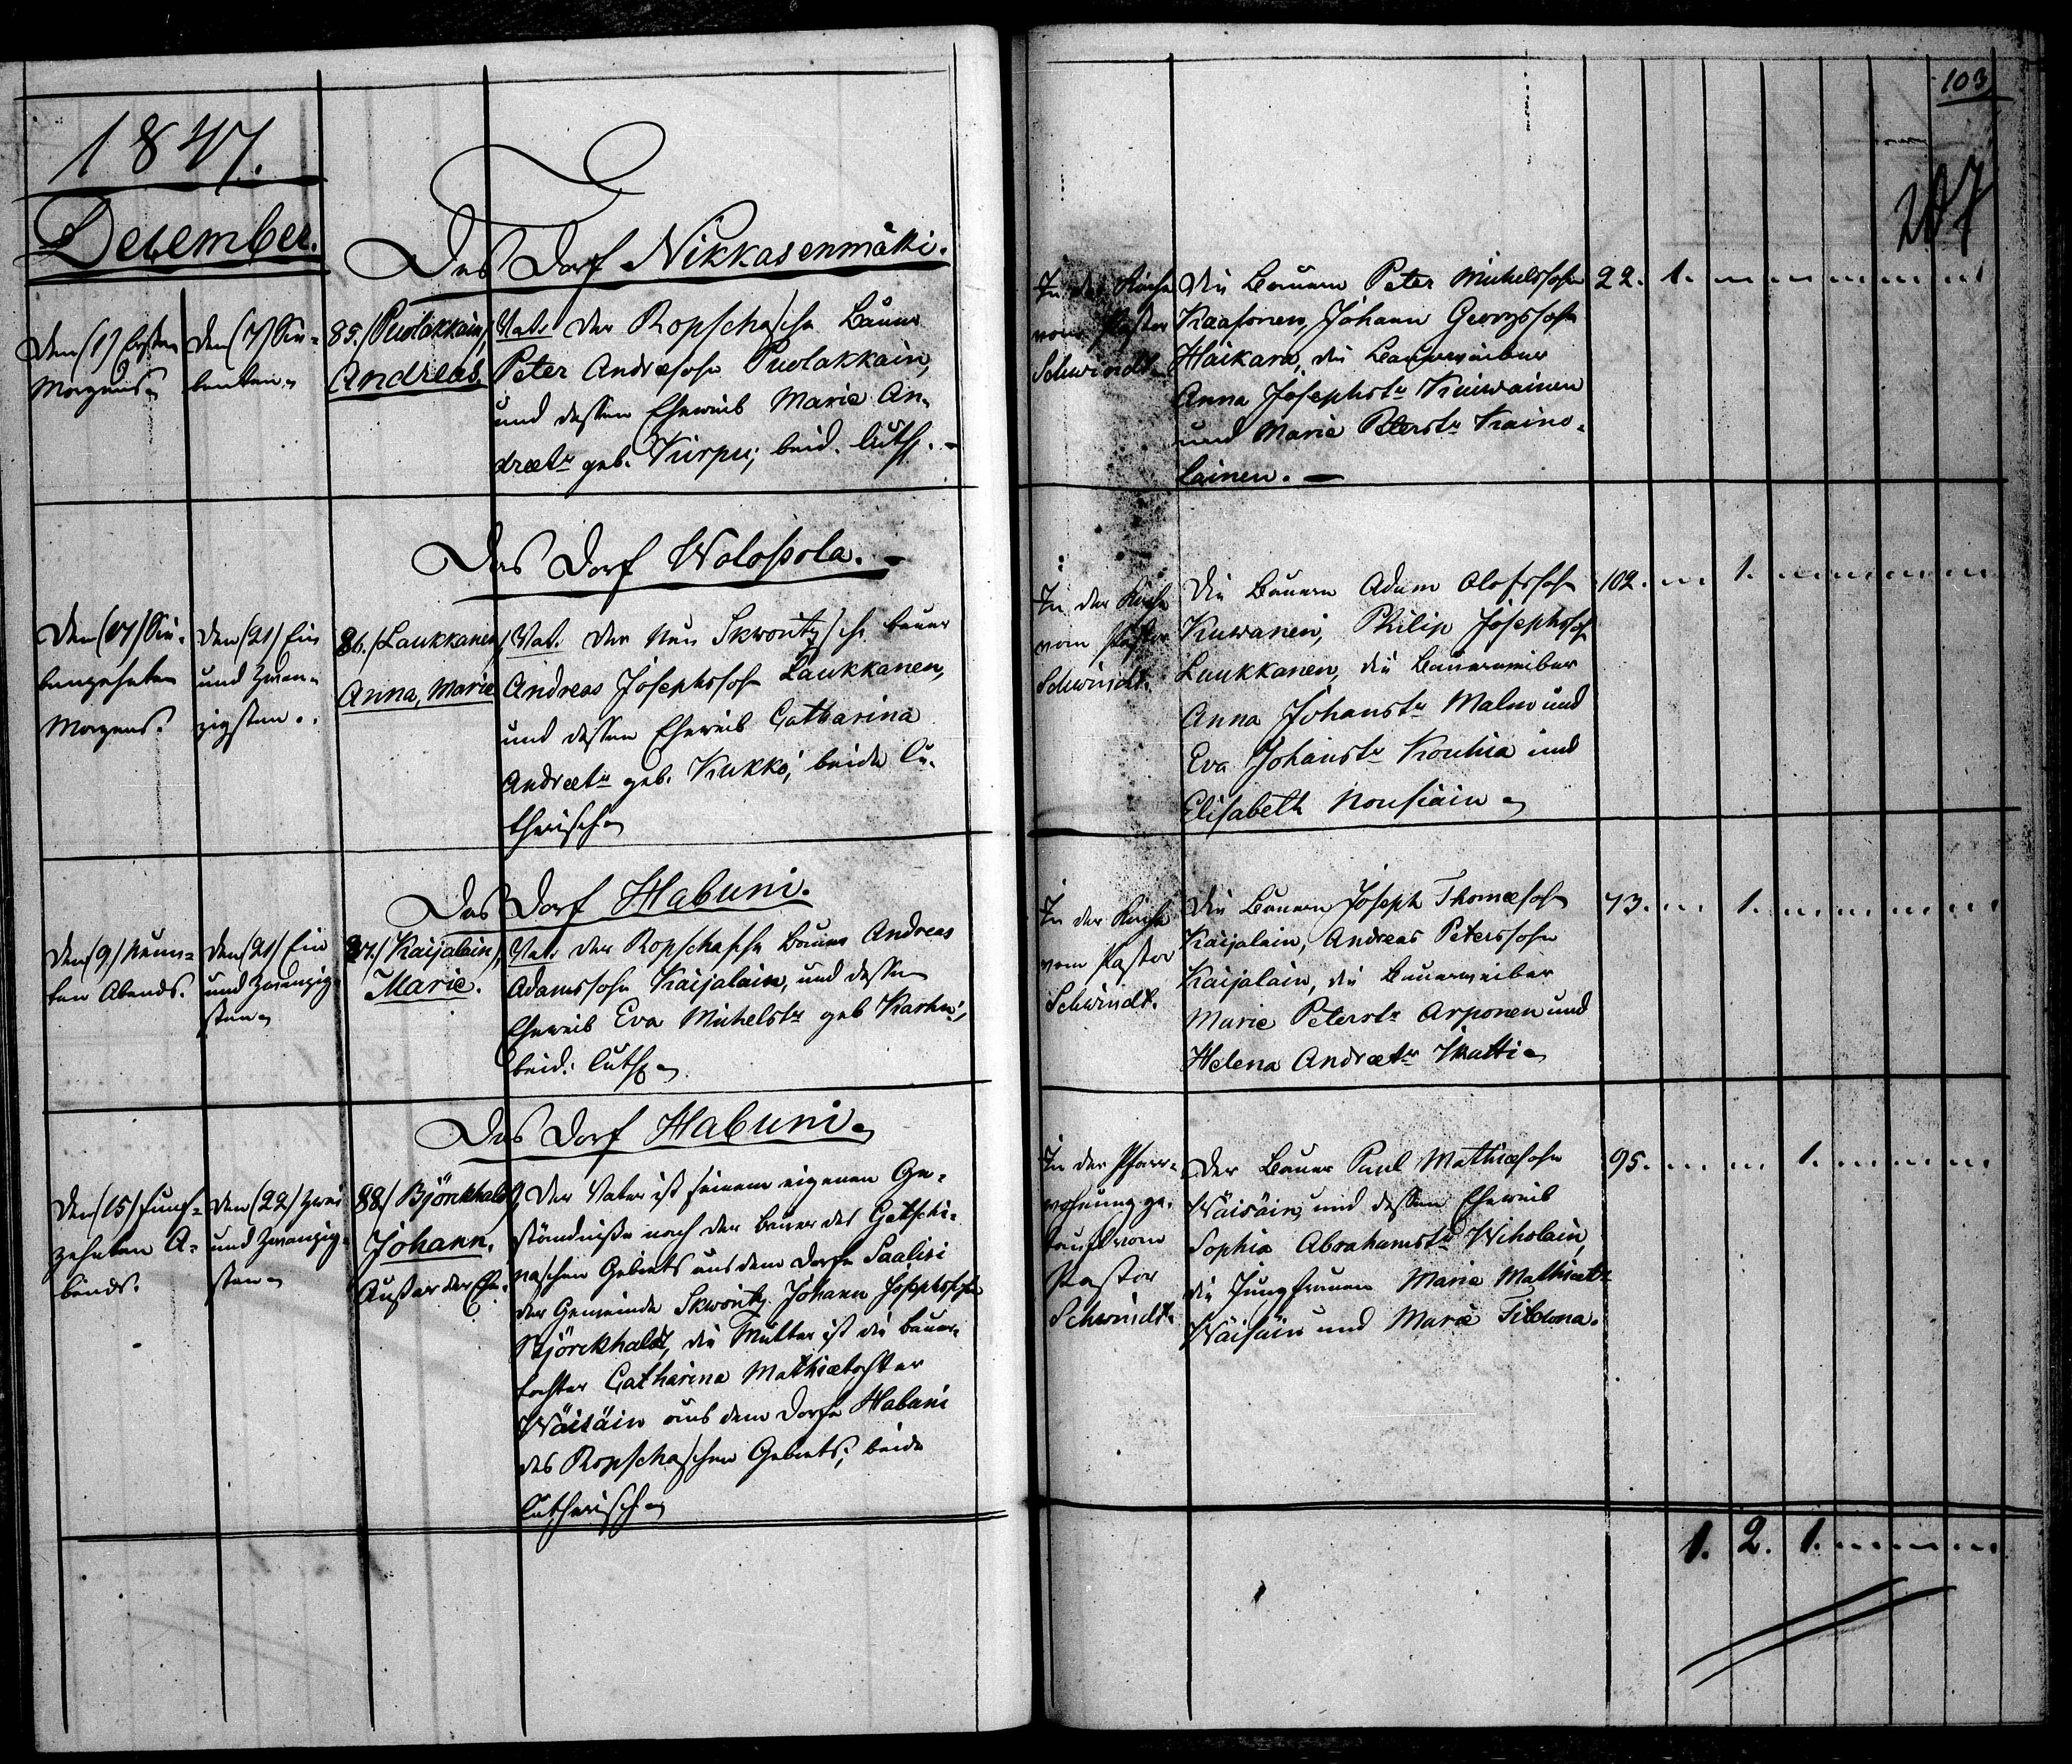 1847.
December.
Das Dorf Nikkasenmäki.
Den (1) Ersten
Morgens
Den (7) Sie-
benten
85. / Puolakkain,
Andreas.
Vat. der Ropschasche Bauer
Peter Andreæsohn Puolakkain,
und dessen Eheweib Marie An-
dreætr geb. Kurpu; beid. luth.
Das Dorf Wolossola.
Den (17) Sie-
benzehnten
Morgens.
Den (21) Ein
und Zwan-
zigsten.
86. / Laukkanen,
Anna, Marie
Vat. der Neu Skworitz sche Bauer
Andreas Josephssohn Laukkanen,
und dessen Eheweib Catharina
Andreætr geb. Kukko; beide lu-
therisch
Das Dorf Habuni.
Den (9) Neun-
ten Abends.
Den (21) Ein
und Zwanzig-
sten
87. / Kaijalain,
Marie.
Vat. der Ropschasche Bauer Andreas
Adamssohn Kaijalain, und dessen
Eheweib Eva Michelstr geb. Karhu;
beid. luth
Das Dorf Habuni
Den (15) Funf-
zehnten A-
bends.
Den (22) Zwei
und Zwanzig-
sten
88. / Björckhald,
Johann.
Außer der Ehe.
Der Vater ist seinem eigenen Ge-
ständniße nach der Bauer des Gatschi-
naschen Gebiets aus dem Dorfe Saalisi
der Gemeinde Skworitz Johann Josephssohn
Björckhald, die Mutter ist die Bauer-
tochter Catharina Mathiætochter
Wäisäin aus dem Dorfe Habuni
des Ropschaschen Gebiets; beide
lutherisch
103
207
In der Kirche
vom Pastor
Schwindt.
Die Bauern Peter Michelssohn
Kaasonen, Johann Georgssohn
Haikara, die Bauerweiber
Anna Josephstr Kuiwainen
und Marie Peterstr Kaino-
lainen.
22. 1.
In der Kirche
vom Pastor
Schwindt.
Die Bauern Adam Olofssohn
Kuwanen, Philip Josephssohn
Laukkanen, die Bauerweiber
Anna Johanstr Malm und
Eva Johanstr Kouhia und
Elisabeth Nousiain
102. 1.
In der Kirche
vom Pastor
Schwindt.
Die Bauern Joseph Thomæsohn
Kaijalain, Andreas Peterssohn
Kaijalain, die Bauerweiber
Marie Peterstr Arponen und
Helena Andreætr Mutti
73. 1.
In der Pfarr-
wohnung ge-
tauft vom
Pastor
Schwindt.
Der Bauer Paul Mathiæsohn
Wäisäin, und dessen Eheweib
Sophia Abrahamstr Wiholain,
die Jungfrauen Maria Mathiætr
Wäisäin und Maria
95. 1.
1. 2. 1.